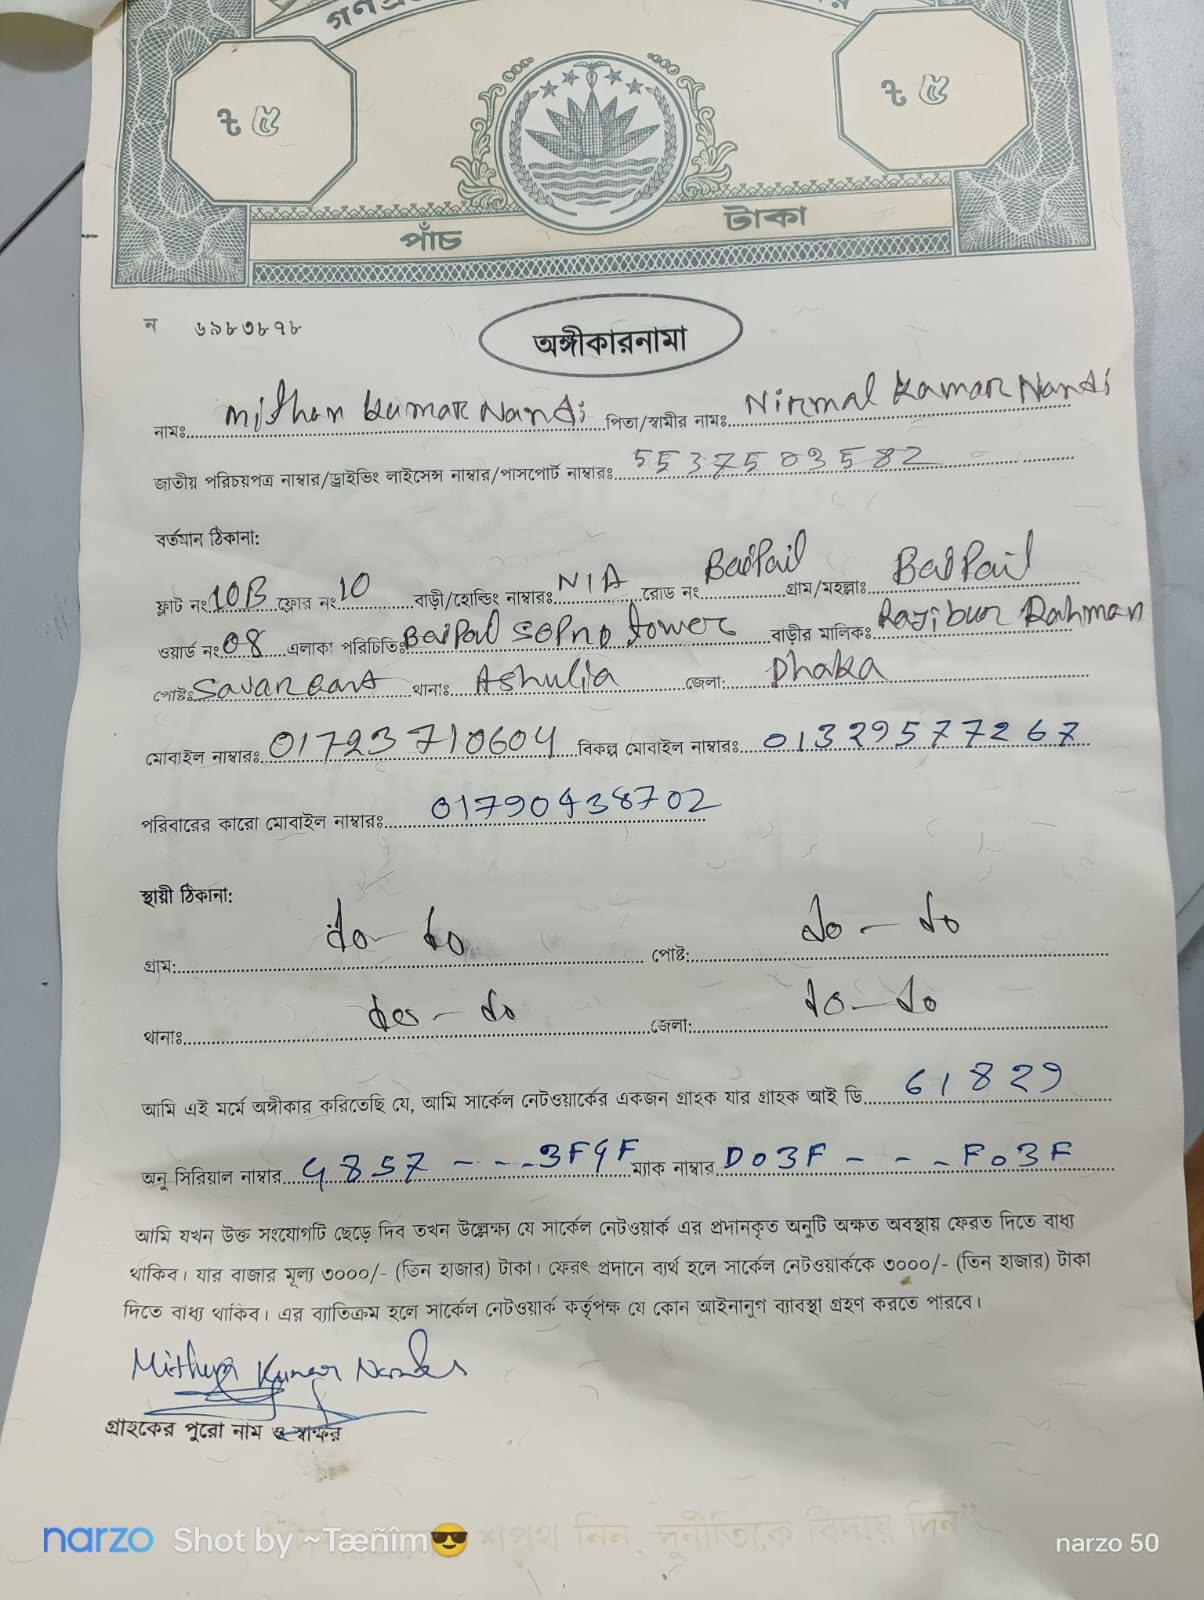 ৳ ৫
৳ ৫
পাঁচ টাকা
ন ৬৯৮৩৮৭৮
অঙ্গীকারনামা
নামঃ Mithun Kumar Nandi পিতা/স্বামীর নামঃ Nirmal Kumar Nandi
জাতীয় পরিচয়পত্র নাম্বার/ড্রাইভিং লাইসেন্স নাম্বার/পাসপোর্ট নাম্বারঃ 5537503582
বর্তমান ঠিকানা:
ফ্লাট নং 10B ফ্লোর নং 10 বাড়ী/হোল্ডিং নাম্বারঃ N/A রোড নং Baipail গ্রাম/মহল্লাঃ Baipail
ওয়ার্ড নং 08 এলাকা পরিচিতি Baipail Sopno tower বাড়ীর মালিকঃ Rajibur Rahman
পোষ্টঃ Savar Cant থানাঃ Ashulia জেলা: Dhaka
মোবাইল নাম্বারঃ 01723710604 বিকল্প মোবাইল নাম্বারঃ 01329577267
পরিবারের কারো মোবাইল নাম্বারঃ 01790438702
স্থায়ী ঠিকানা:
গ্রাম: do - do পোষ্ট: do - do
থানাঃ do - do জেলা: do - do
আমি এই মর্মে অঙ্গীকার করিতেছি যে, আমি সার্কেল নেটওয়ার্কের একজন গ্রাহক যার গ্রাহক আই ডি 61829
অনু সিরিয়াল নাম্বার 4857 - - - 3F9F ম্যাক নাম্বার D03F - - - F03F
আমি যখন উক্ত সংযোগটি ছেড়ে দিব তখন উল্লেক্ষ্য যে সার্কেল নেটওয়ার্ক এর প্রদানকৃত অনুটি অক্ষত অবস্থায় ফেরত দিতে বাধ্য
থাকিব। যার বাজার মূল্য ৩০০০/- (তিন হাজার) টাকা। ফেরৎ প্রদানে ব্যর্থ হলে সার্কেল নেটওয়ার্ককে ৩০০০/- (তিন হাজার) টাকা
দিতে বাধ্য থাকিব। এর ব্যাতিক্রম হলে সার্কেল নেটওয়ার্ক কর্তৃপক্ষ যে কোন আইনানুগ ব্যাবস্থা গ্রহণ করতে পারবে।
Mithun Kumar Nandi
গ্রাহকের পুরো নাম ও স্বাক্ষর
শপথ নিন, দুর্নীতিকে বিদায় দিন”
narzo Shot by ~Tæñîm😎 narzo 50